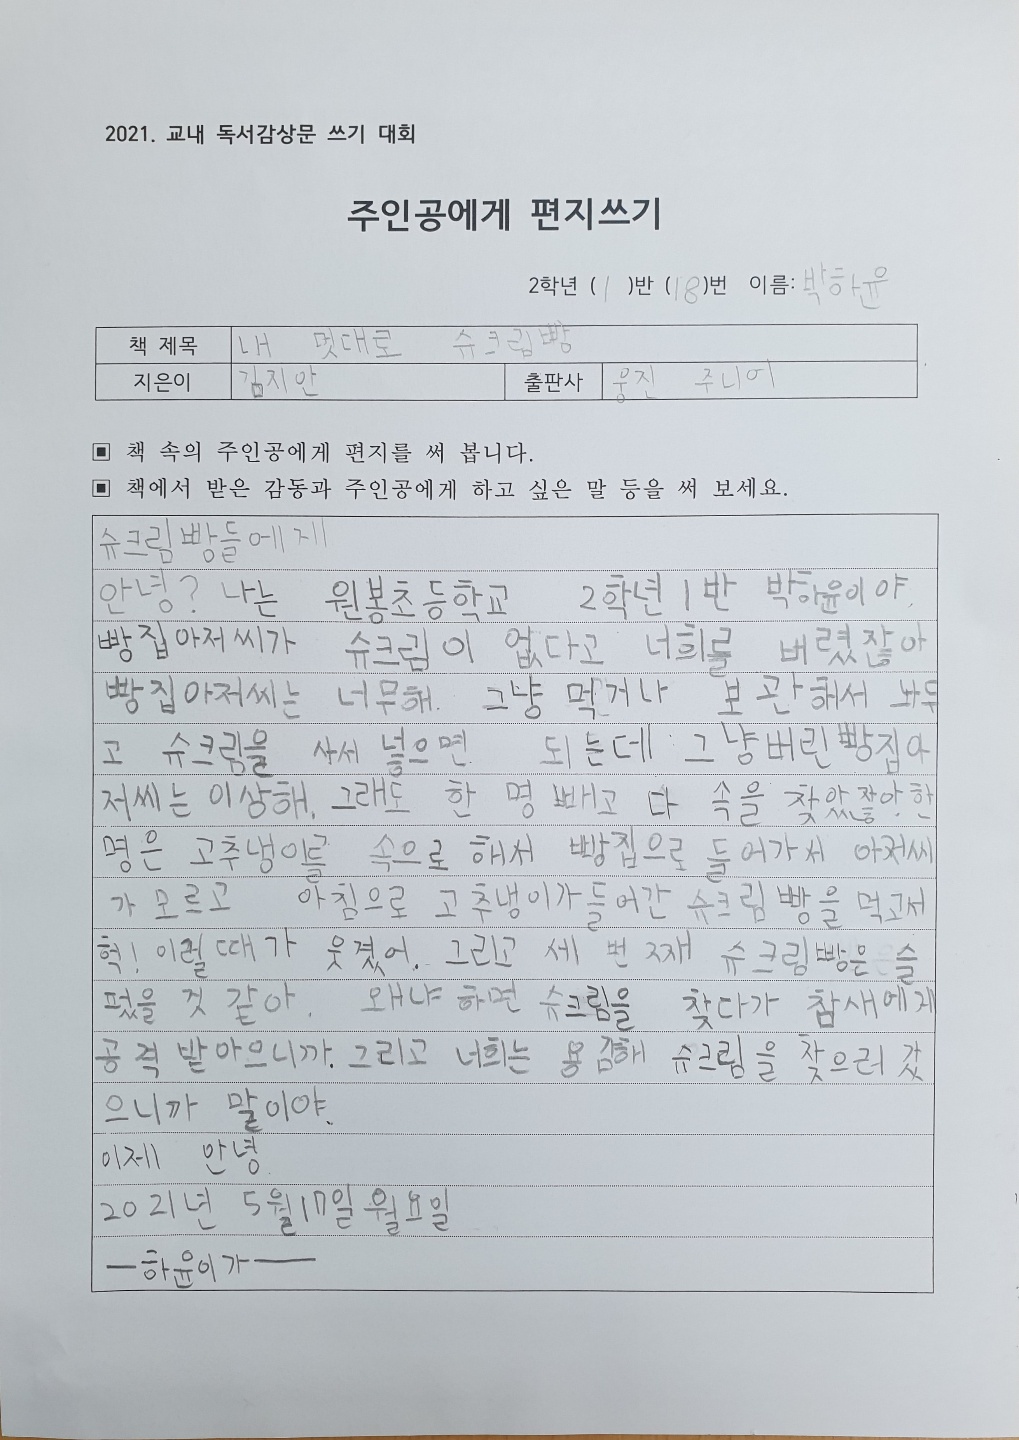 2021. 교내 독서감상문 쓰기 대회
주인공에게 편지쓰기
2학년 (1)반 (18)번 이름: 박하윤
책 제목 내 멋대로 슈크림빵
지은이 김지안 출판사 웅진 주니어
▣ 책 속의 주인공에게 편지를 써 봅니다.
▣ 책에서 받은 감동과 주인공에게 하고 싶은 말 등을 써 보세요.
슈크림빵들에게
안녕? 나는 원봉초등학교 2학년 1반 박하윤이야.
빵집아저씨가 슈크림이 없다고 너희를 버렸잖아
빵집아저씨는 너무해. 그냥 먹거나 보관해서 놔두
고 슈크림을 사서 넣으면 되는데 그냥버린빵집아
저씨는 이상해. 그래도 한 명 빼고 다 속을 찾았잖아. 한
명은 고추냉이를 속으로 해서 빵집으로 들어가서 아저씨
가 모르고 아침으로 고추냉이가들어간 슈크림빵을 먹고서
헉! 이럴때가 웃겼어. 그리고 세 번째 슈크림빵은 슬
펐을 것 같아. 왜냐하면 슈크림을 찾다가 참새에게
공격받아으니까. 그리고 너희는 용감해 슈크림을 찾으러 갔
으니까 말이야.
이제 안녕.
2021년 5월17일 월요일
—하윤이가—